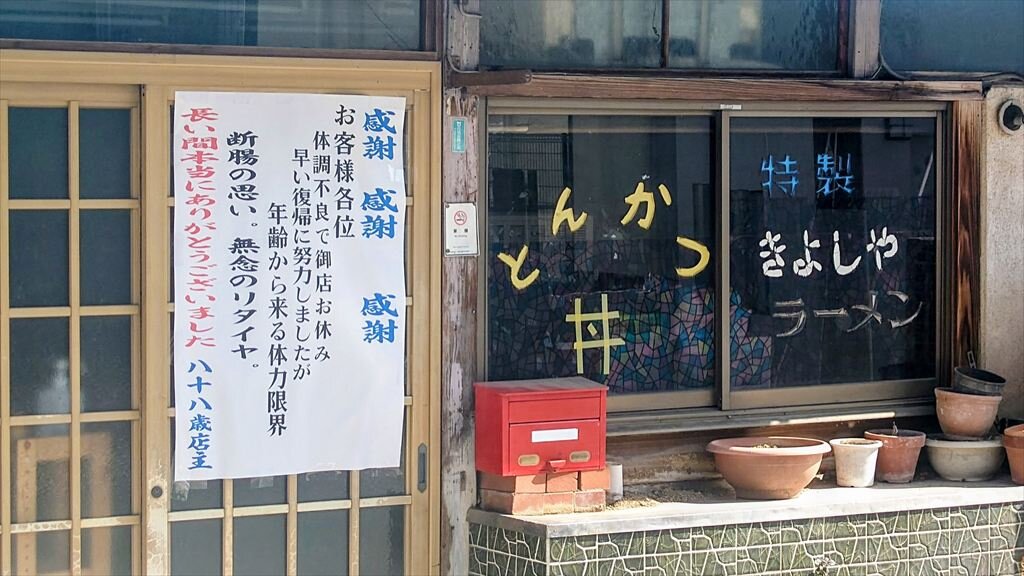 感謝 感謝 感謝
お客様各位
体調不良で御店お休み
早い復帰に努力しましたが
年齢から来る体力限界
断腸の思い。無念のリタイヤ。
長い間本当にありがとうございました 八十八歳店主
とんかつ
丼
特製
きよしや
ラーメン